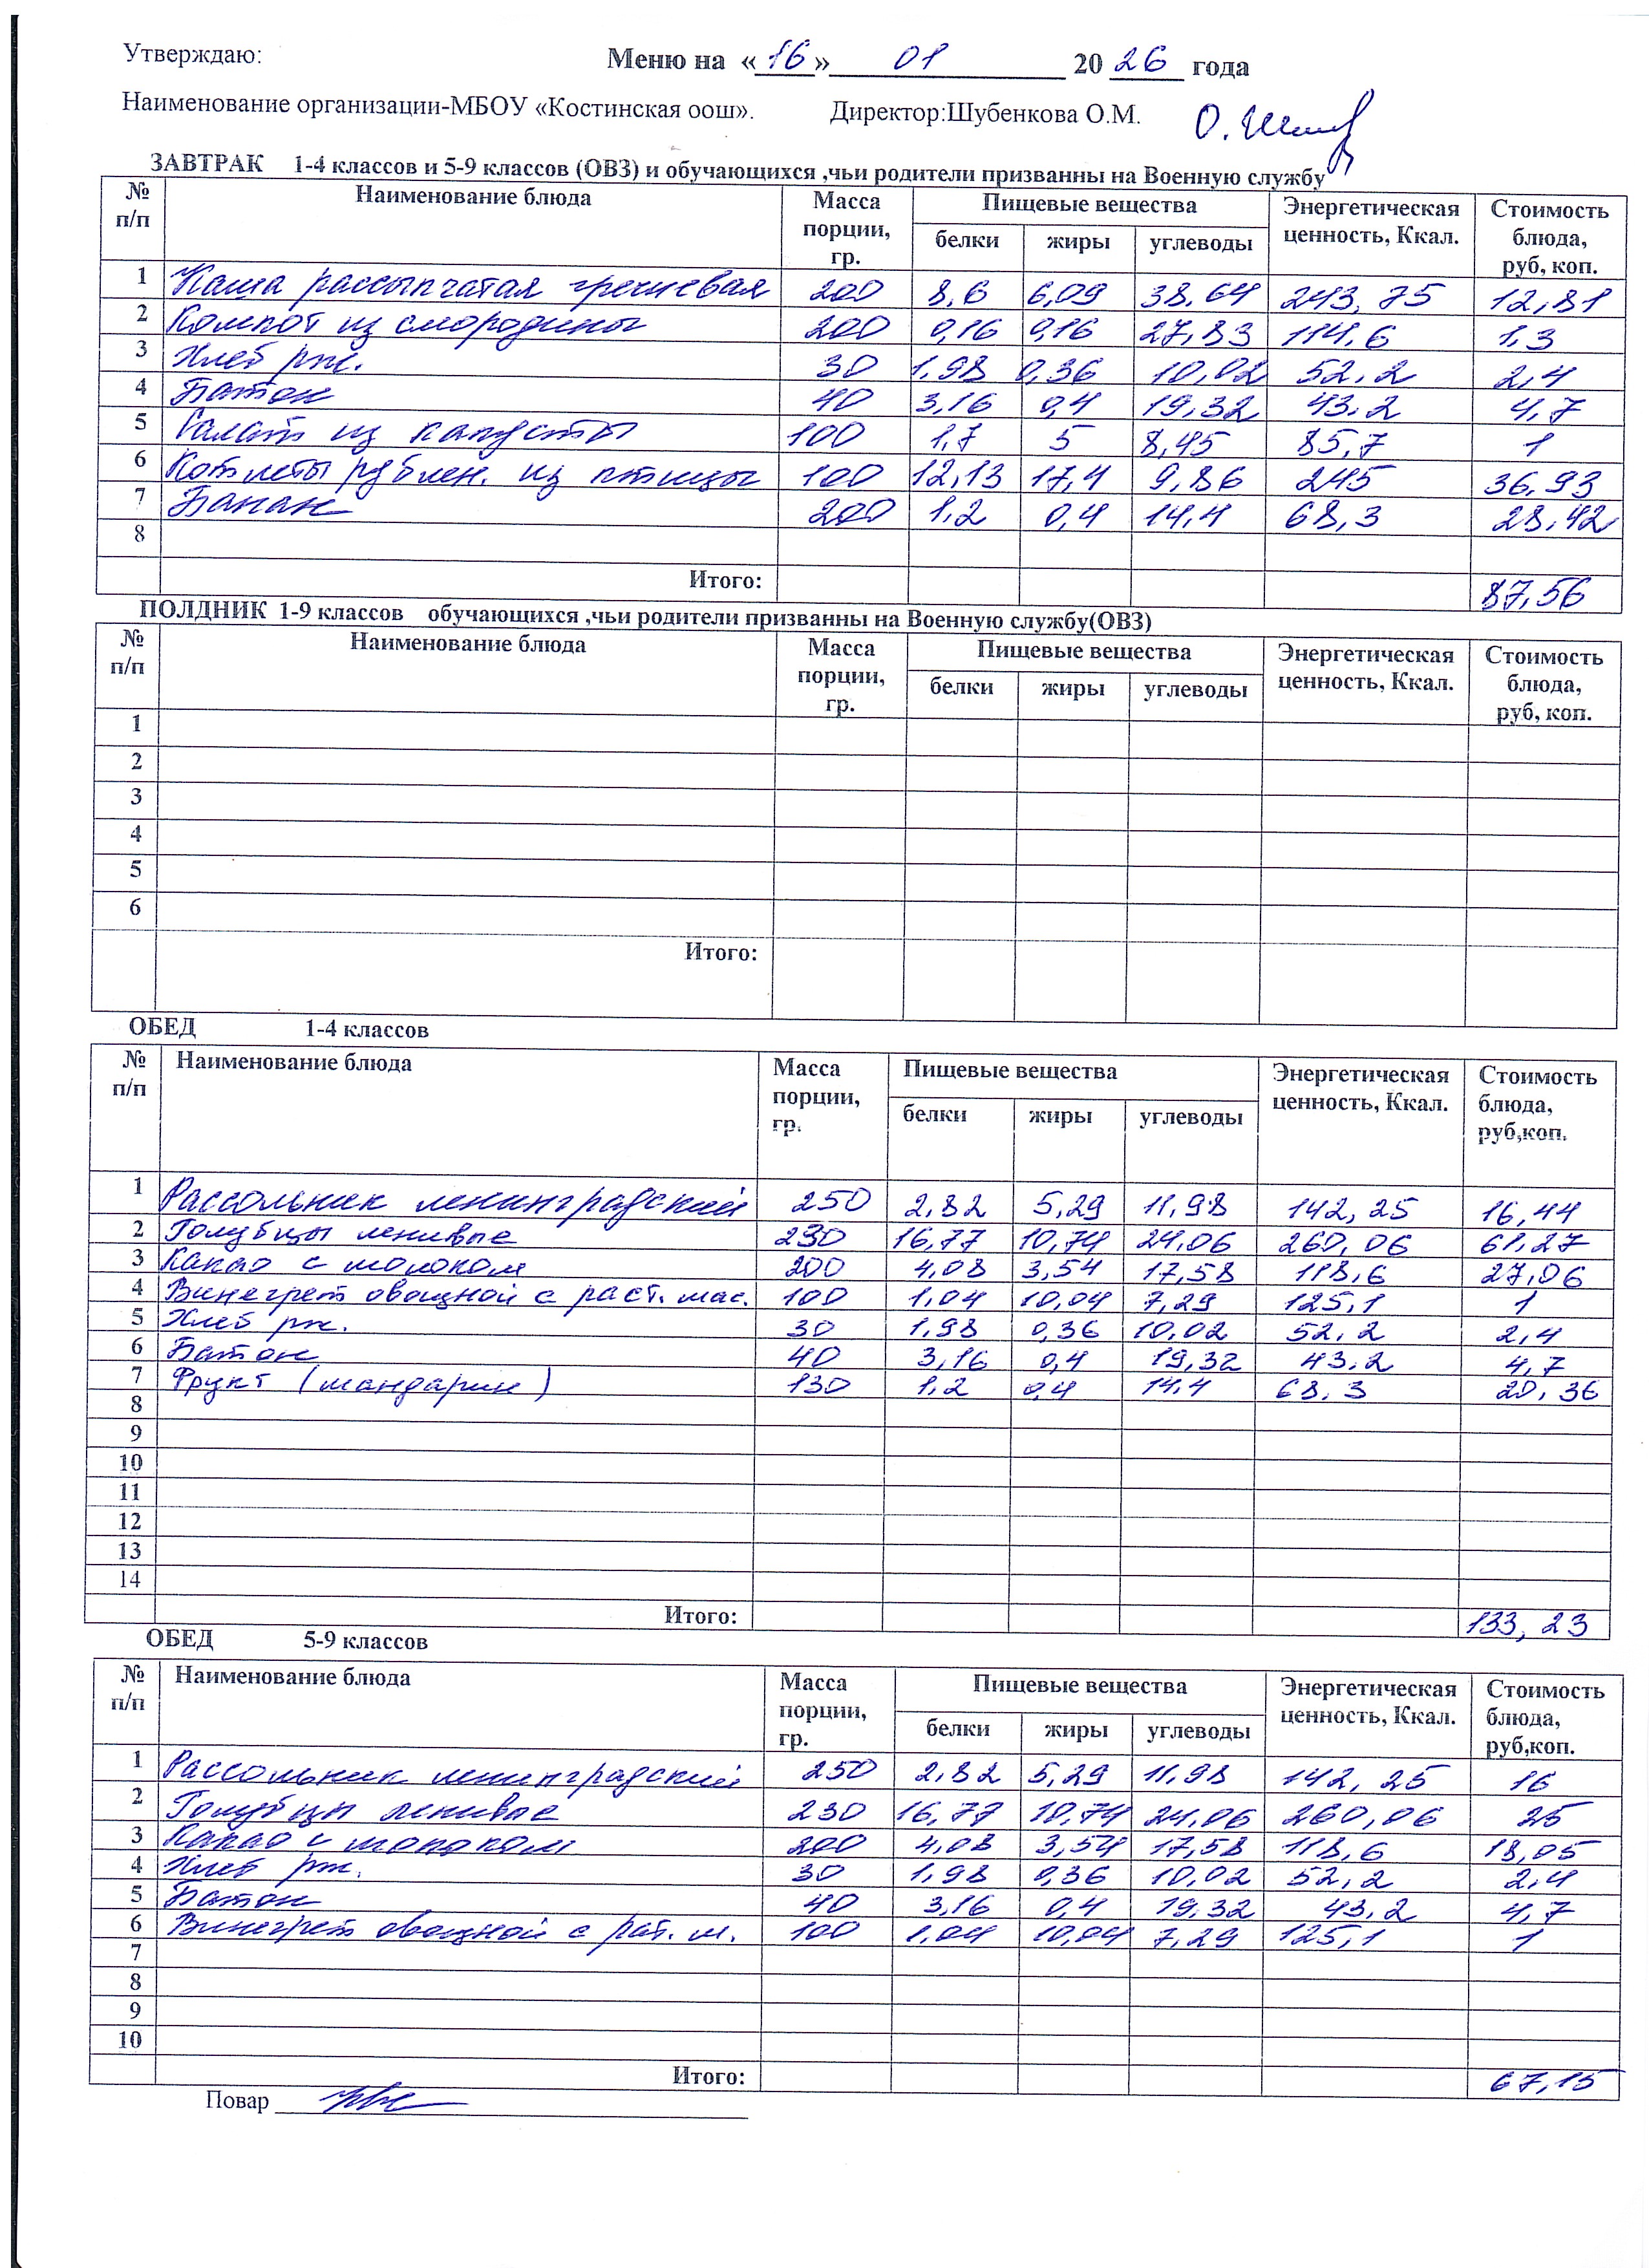 Утверждаю: Меню на «16» 01 2026 года
Наименование организации-МБОУ «Костинская оош». Директор:Шубенкова О.М.
ЗАВТРАК 1-4 классов и 5-9 классов (ОВЗ) и обучающихся ,чьи родители призванны на Военную службу
№ п/п Наименование блюда Масса порции, гр. Пищевые вещества Энергетическая ценность, Ккал. Стоимость блюда, руб, коп.
белки жиры углеводы
1 Каша рассыпчатая гречневая 200 8,6 6,09 38,64 243,75 12,81
2 Компот из смородины 200 0,16 0,16 27,83 114,6 1,3
3 Хлеб рж. 30 1,98 0,36 10,02 52,2 2,4
4 Батон 40 3,16 0,4 19,32 43,2 4,7
5 Салат из капусты 100 1,7 5 8,45 85,7 1
6 Котлеты рублен. из птицы 100 12,13 17,4 9,86 245 36,93
7 Банан 200 1,2 0,4 14,4 68,3 28,42
8
Итого: 87,56
ПОЛДНИК 1-9 классов обучающихся ,чьи родители призванны на Военную службу(ОВЗ)
№ п/п Наименование блюда Масса порции, гр. Пищевые вещества Энергетическая ценность, Ккал. Стоимость блюда, руб, коп.
белки жиры углеводы
1
2
3
4
5
6
Итого:
ОБЕД 1-4 классов
№ п/п Наименование блюда Масса порции, гр. Пищевые вещества Энергетическая ценность, Ккал. Стоимость блюда, руб,коп.
белки жиры углеводы
1 Рассольник ленинградский 250 2,82 5,29 11,98 142,25 16,44
2 Голубцы ленивые 230 16,77 10,74 24,06 260,06 61,27
3 Какао с молоком 200 4,08 3,54 17,58 118,6 27,06
4 Винегрет овощной с раст. мас. 100 1,04 10,04 7,29 125,1 1
5 Хлеб рж. 30 1,98 0,36 10,02 52,2 2,4
6 Батон 40 3,16 0,4 19,32 43,2 4,7
7 Фрукт (мандарин) 130 1,2 0,4 14,4 68,3 20,36
8
9
10
11
12
13
14
Итого: 133,23
ОБЕД 5-9 классов
№ п/п Наименование блюда Масса порции, гр. Пищевые вещества Энергетическая ценность, Ккал. Стоимость блюда, руб,коп.
белки жиры углеводы
1 Рассольник ленинградский 250 2,82 5,29 11,98 142,25 16
2 Голубцы ленивые 230 16,77 10,74 24,06 260,06 25
3 Какао с молоком 200 4,08 3,54 17,58 118,6 18,05
4 Хлеб рж. 30 1,98 0,36 10,02 52,2 2,4
5 Батон 40 3,16 0,4 19,32 43,2 4,7
6 Винегрет овощной с рат. м. 100 1,04 10,04 7,29 125,1 1
7
8
9
10
Итого: 67,15
Повар